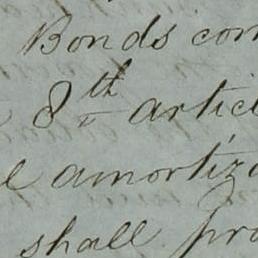 Bonds con
8th artic
amortiza
shall pro